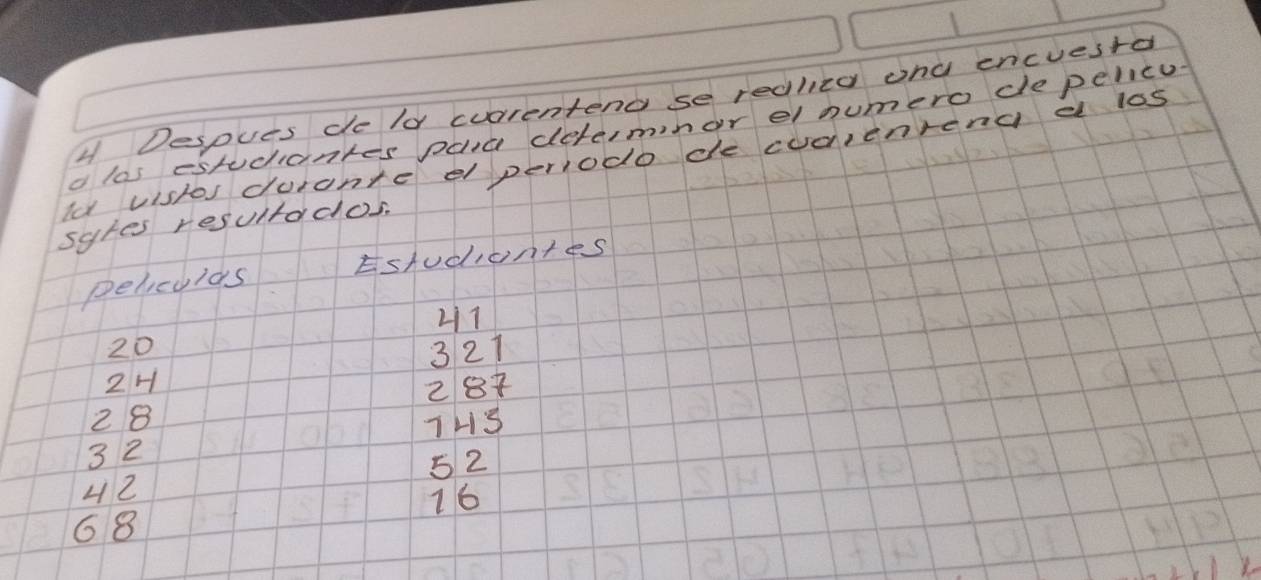 4 Despues de la cuarentena se realiza una encuesta
a los estudiantes para determinar el numero de pelicu-
la vistos durante el periodo de cuarentena a los
sgtes resultados.
peliculas Estudiantes
20 41
24 321
28 287
32 145
42 52
68 16